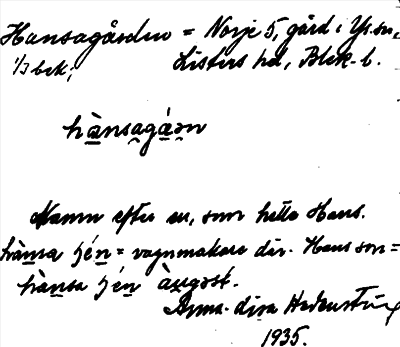 Hansagården = Norje 5, gård i Ys. sn,
1/3 bek; Listers hd, Blek. l.
hànsagáən
Namn efter en, som hette Hans.
hànsa jén = vagnmakare dir. Hansson =
hànsa jén àugəst.
Anna-Lisa Hedenstie
1935.